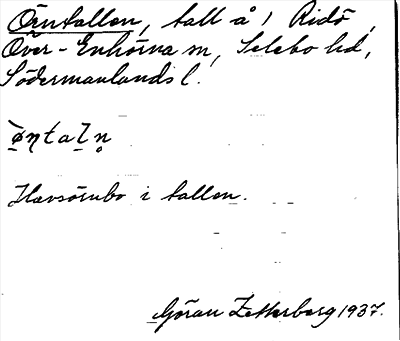 Örntallen, tall å 1 Ridö,
Över-Enhörna sn, Selebo hd,
Södermanlands l.
Havsörnbo i tallen.
Göran Zetterberg 1937.